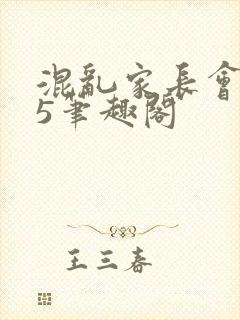 混亂家長會
5筆趣閣
王三春